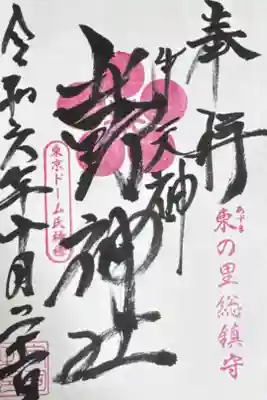 奉拝
あずま
東の里総鎮守
牛天神
北野神社
東京ドーム氏神様
令和六年十月